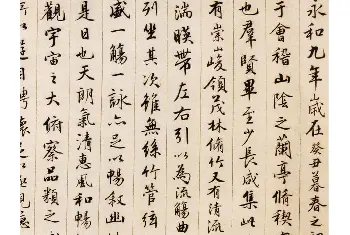 永和九年歲在癸丑暮春之初
于會稽山陰之蘭亭脩禊
也群賢畢至少長咸集此
有崇山峻領茂林脩竹又有清流
湍暎帶左右引以為流觴曲
列坐其次雖無絲竹管弦
盛一觴一詠亦足以暢叙幽
是日也天朗氣清惠風和暢
觀宇宙之大俯察品類之
以遊目騁懷足以極視聽